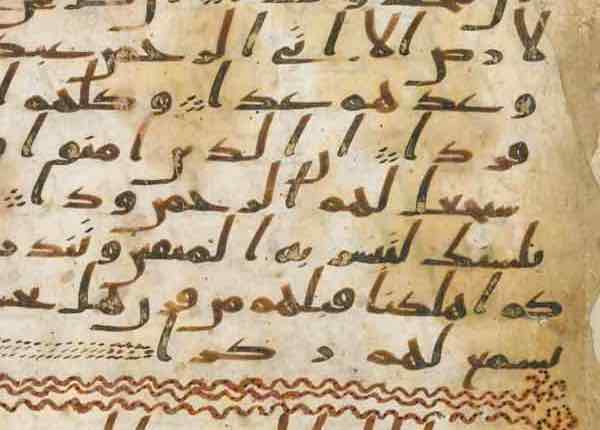 لارض الا اتى الرحمن عبد
وعدهم عدا وكلهم ا
فردا ان الذين امنوا
سيجعل لهم الرحمن ودا
بلسنك لتبشر به المتقين وتنذر
كم اهلكنا قبلهم من قرن هل تحس
تسمع لهم ركزا